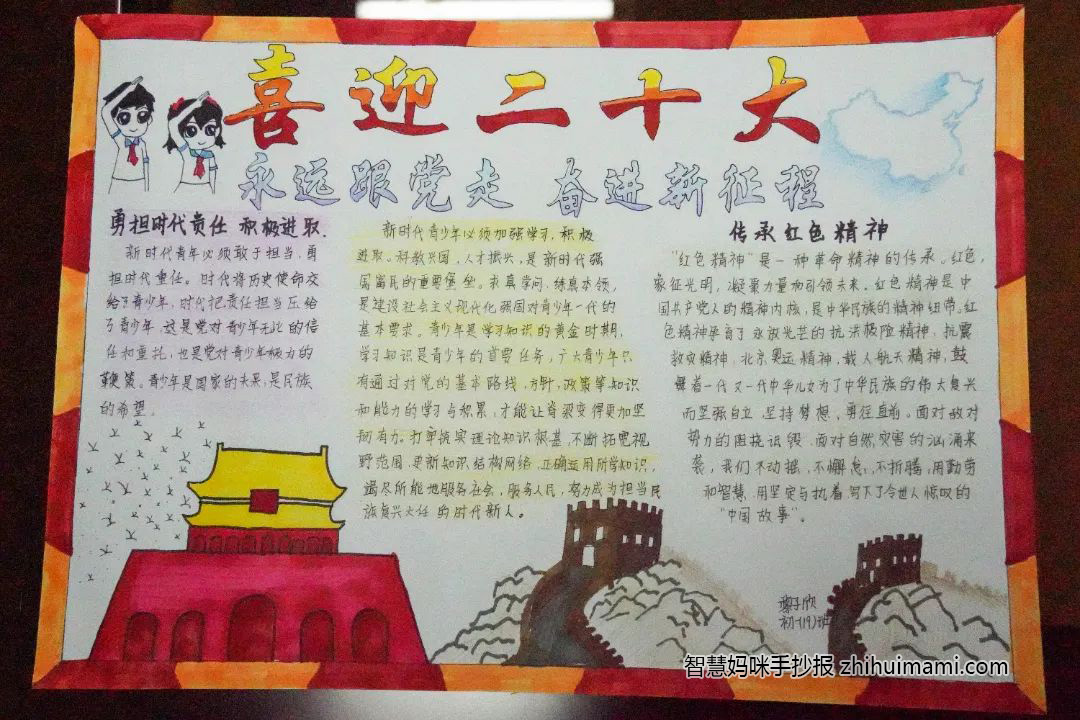 喜迎二十大
永远跟党走 奋进新征程
勇担时代责任 积极进取.
新时代青年必须敢于担当,勇
担时代重任。时代将历史使命交
给了青少年,时代把责任担当压给
了青少年 这是党对青少年无比的信
任和重托,也是党对青少年极力的
鞭策。青少年是国家的未来,是民族
的希望。
新时代青少年必须加强学习,积极
进取。科教兴国,人才振兴,是新时代强
国富民的重要堡垒。求真学问,练真本领,
是建设社会主义现代化强国对青少年一代的
基本要求。青少年是学习知识的黄金时期,
学习知识是青少年的首要任务,广大青少年只
有通过对党的基本路线,方针,政策等知识
和能力的学习与积累,才能让脊梁变得更加坚
韧有力。打牢扎实理论知识根基,不断拓宽视
野范围,更新知识结构网络,正确运用所学知识,
竭尽所能地服务社会,服务人民,努力成为担当民
族复兴大任的时代新人。
传承红色精神
“红色精神”是一种革命精神的传承。红色,
象征光明,凝聚力量和引领未来。红色精神是中
国共产党人的精神内核,是中华民族的精神纽带。红
色精神孕育了永放光芒的抗洪抢险精神,抗震
救灾精神,北京奥运精神,载人航天精神,鼓
舞着一代又一代中华儿女为了中华民族的伟大复兴
而坚强自立,坚持梦想,勇往直前。面对敌对
势力的阻挠诋毁,面对自然灾害的汹涌来
袭,我们不动摇,不懈怠,不折腾,用勤劳
和智慧,用坚定与执着写下了令世人惊叹的
“中国故事”。
子欣
初一(19)班
智慧妈咪手抄报 zhihuimami.com